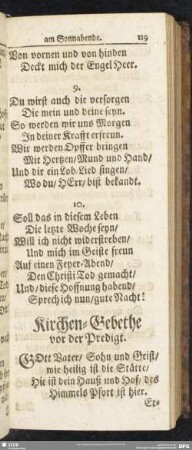 am Sonnabende. 119
Von vornen und von hinden
Deckt mich der Engel Heer.
9.
Du wirst auch die versorgen
Die mein und deine seyn.
So werden wir uns Morgen
In deiner Krafft erfreun.
Wir werden Opffer bringen
Mit Hertzen/Mund und Hand/
Und dir ein Lob-Lied singen/
Wo du/HErr/bist bekandt.
10.
Soll das in diesem Leben
Die letzte Woche seyn/
Will ich nicht widerstreben/
Und mich im Geiste freun
Auf einen Feyer-Abend/
Den Christi Tod gemacht/
Und/diese Hoffnung habend/
Sprech ich nun/gute Nacht!
Kirchen-Gebethe
vor der Predigt.
GOtt Vater/ Sohn und Geist/
wie heilig ist die Stätte/
Hie ist dein Hauß und Hof/ des
Himmels Pfort ist hier.